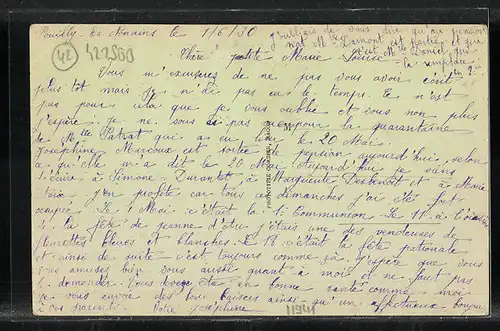 Pouilly-les-Nonains le 1/6/30
j'oubliais de vous dire qu'au pension
nat Mlle Damont est partie et que
c'est Mlle Daniel qui
la remplace
42
422560
Chère petite Marie Louise
Vous m'excuserez de ne pas vous avoir écrit
plus tôt mais je n'ai pas eu le temps. Ce n'est
pas pour cela que je vous oublie et vous non plus
j'espère. je ne vous ai pas vue pour la quarantaine
de Mlle Patrat qui a eu lieu le 20 Mai.
Joséphine Marcoux est sortie pension aujourd'hui, selon
ce qu'elle m'a dit le 20 Mai. Aujourd'hui je vais
écrire à Simone Durantet à Marguerite Desbenoit et à Marie
j'en profite car tous ces dimanches j'ai été fort
occupée. Le 1 Mai c'était la 1e Communion. Le 11 à l'occasion
de la fête de jeanne d'Arc j'étais une des vendeuses de
fleurettes bleues et blanches. Le 18 c'était la fête patronale
et ainsi de suite c'est toujours comme ça. j'espère que vous
vous amusez bien vous aussi quant à moi il ne faut pas
le demander. Vous devez être en bonne santé comme moi.
je vous envoie des bons baisers ainsi qu'un affectueux bonjour
à vos parents. Votre Joséphine
11941